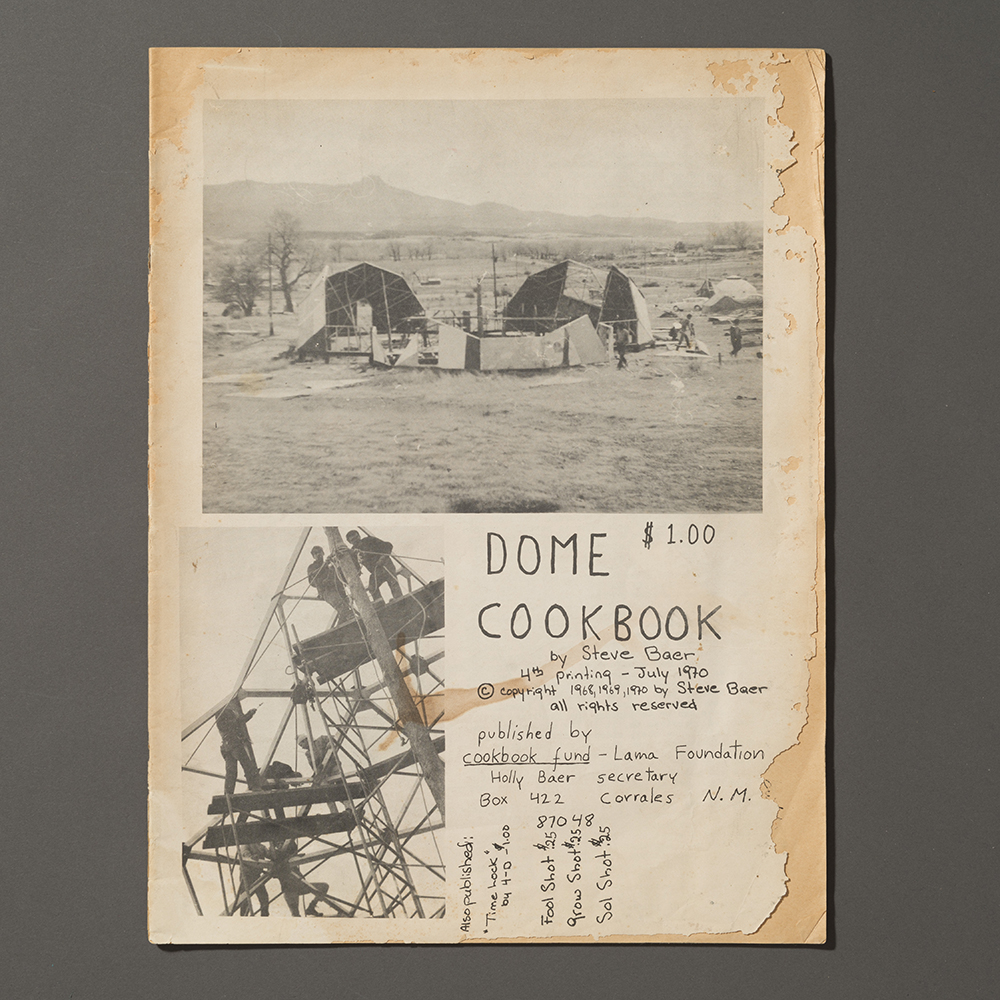 DOME $ 1.00
COOKBOOK
by Steve Baer
4th printing - July 1970
© copyright 1968, 1969, 1970 by Steve Baer
all rights reserved
published by
cookbook fund - Lama Foundation
Holly Baer secretary
Box 422 Corrales N.M.
87048
Also published:
"Time Lock"
by 4-D - $1.00
Fool Shot $.25
Grow Shot $.25
Sol Shot $.25